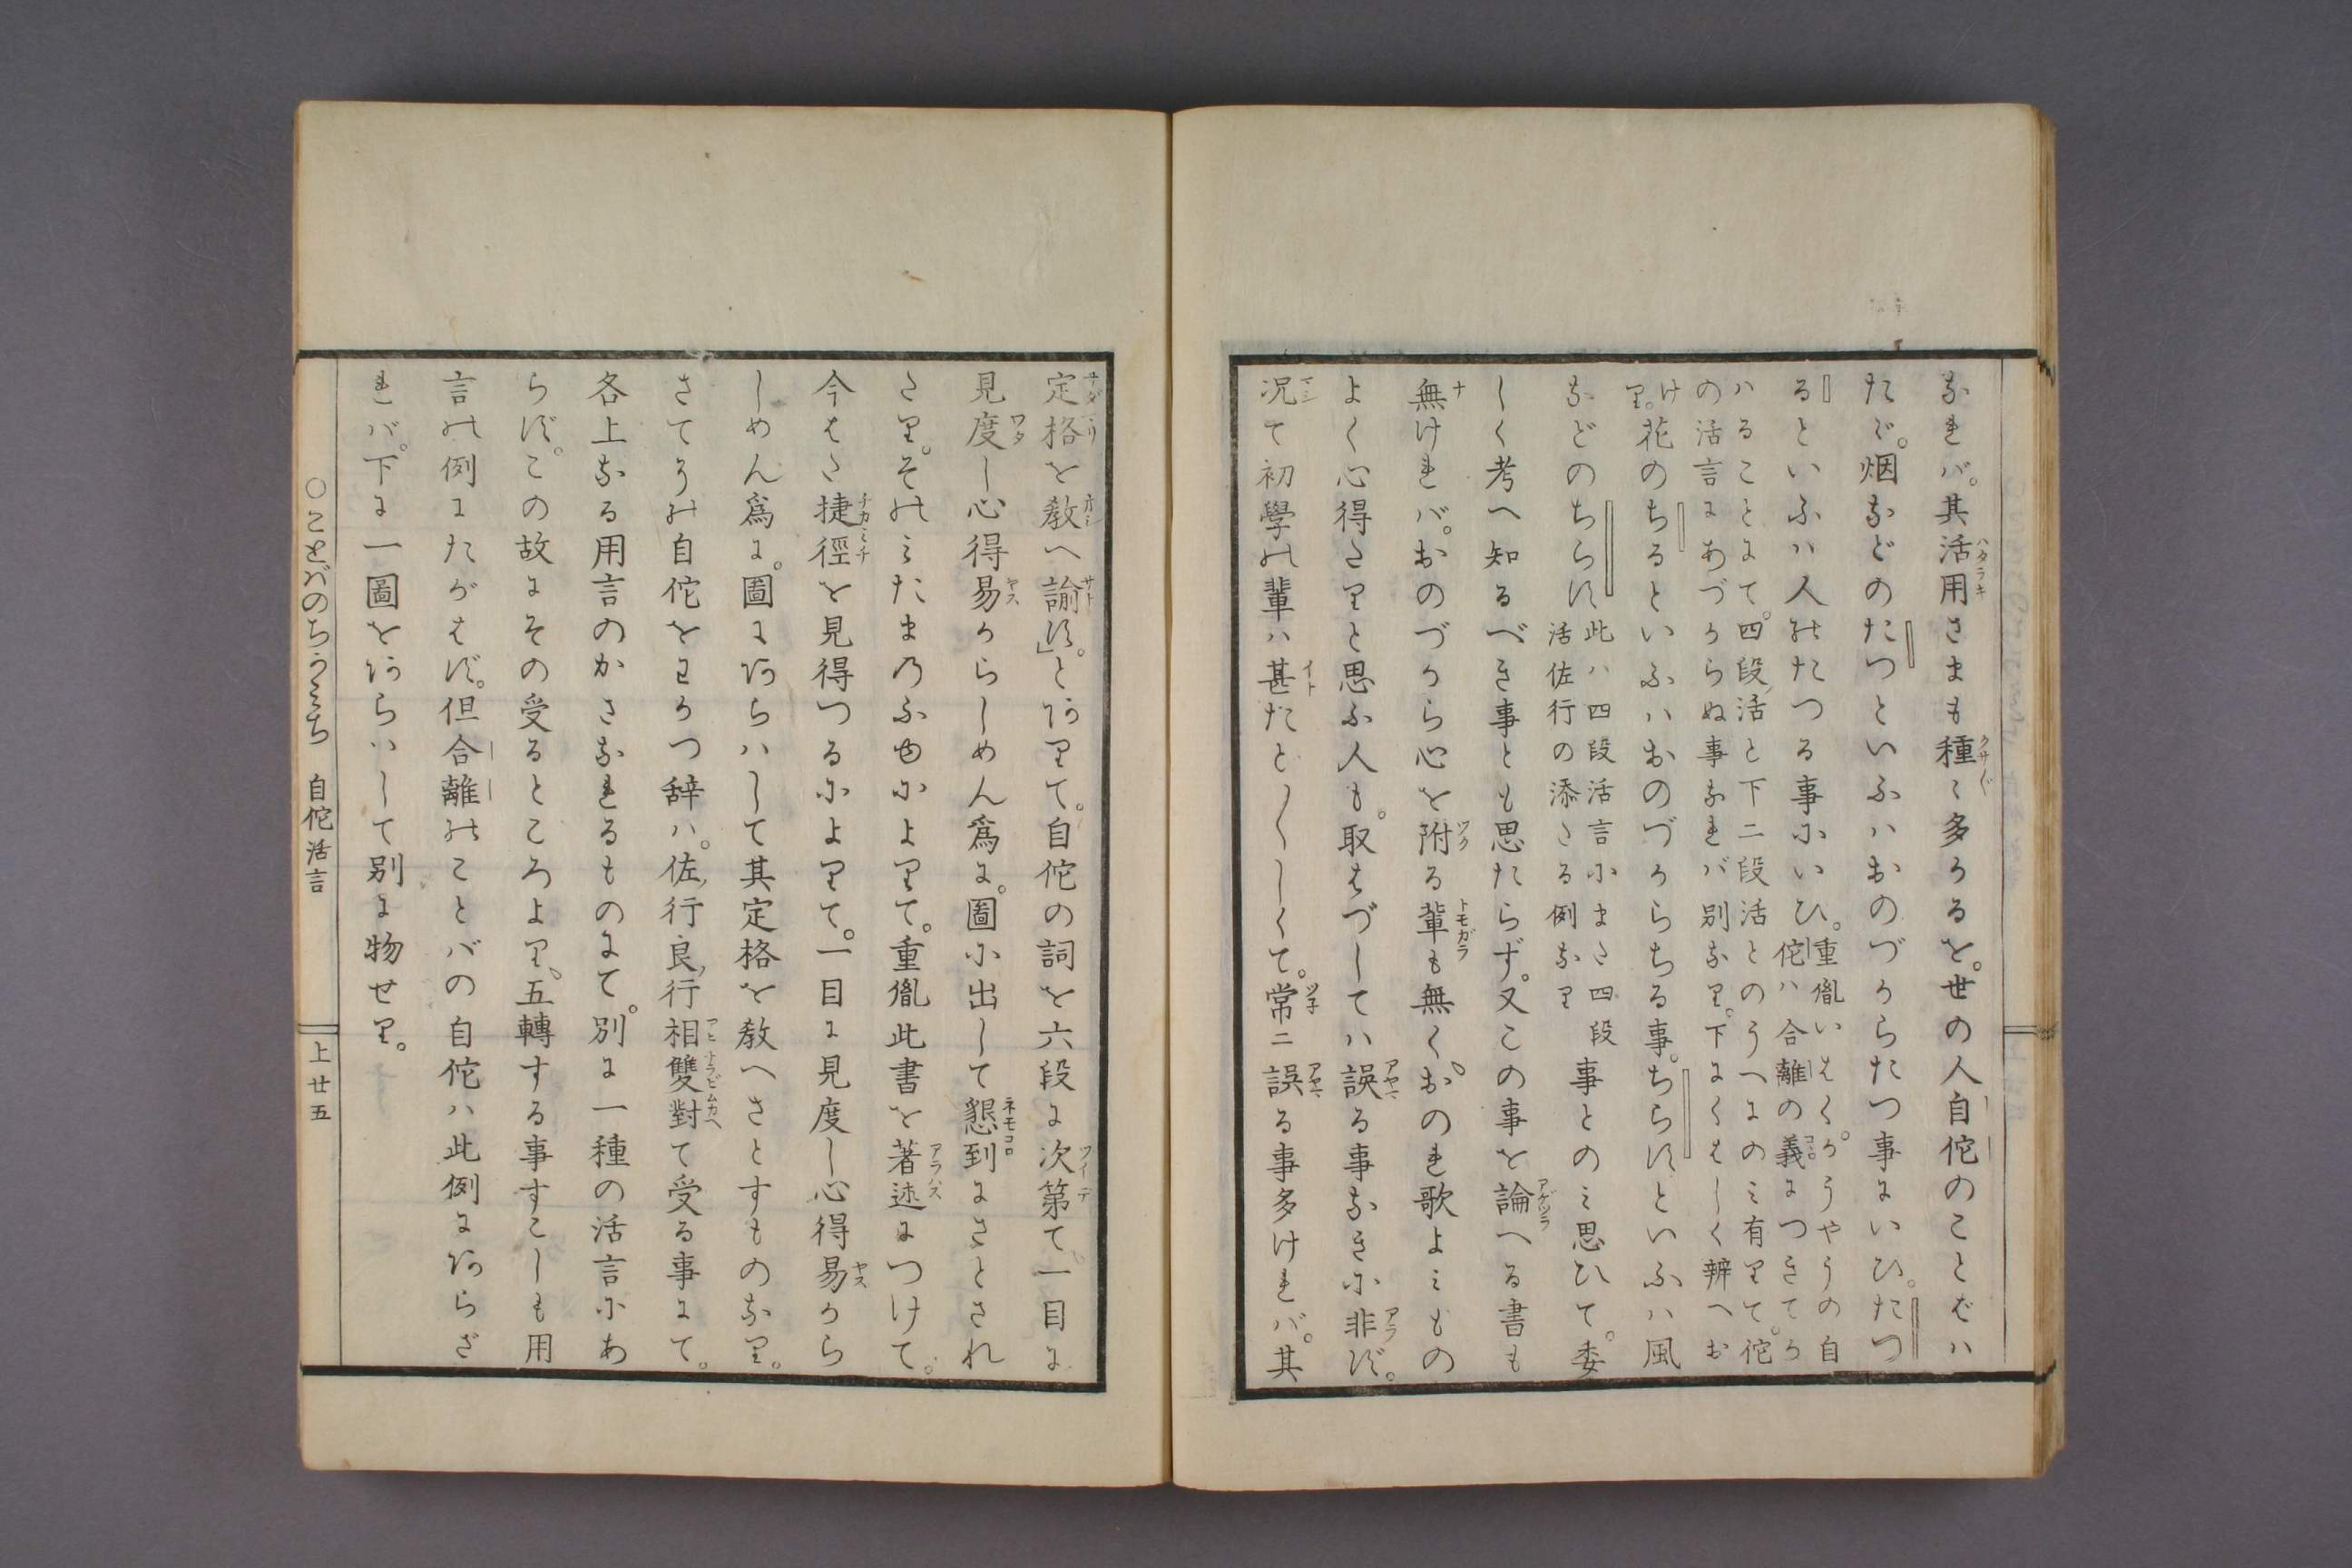 なれバ。其活用さまも種〻多かるを。世の人自佗のことばハ
たゞ。烟などのたつといふハおのづからたつ事にいひ。たつ
るといふハ人のたつる事にいひ。
重胤いはく。かうやうの自
佗ハ合離の義につきてか
ハることにて。四段活と下二段活とのうへにのミ有りて。佗
の活言にあづからぬ事なれバ別なり。下にくはしく辨へお
けり。
花のちるといふハおのづからちる事。ちらすといふハ風
などのちらす
此ハ四段活言にまた四段
活佐行の添たる例なり
事とのミ思ひて。委
しく考へ知るべき事とも思たらず。又この事を論へる書も
無けれバ。おのづから心を附る輩も無く。おのれ歌よミもの
よく心得たりと思ふ人も。取はづしてハ誤る事なきに非ず。
况て初學の輩ハ甚たど〳〵しくて。常ニ誤る事多けれバ。其
定格を教へ諭す。」とありて。自佗の詞を六段に次第て。一目に
見度し心得易からしめん爲に。圖に出して懇到にさとされ
たり。そのミたまのふゆによりて。重胤此書を著述につけて。
今はた捷徑を見得つるによりて。一目に見度し心得易から
しめん爲に。圖にあらハして其定格を教へさとすものなり。
さてその自佗をわかつ辞ハ。佐行良行相雙對て受る事にて。
各上なる用言のかさなれるものにて。別に一種の活言にあ
らず。この故にその受るところより、五轉する事すこしも用
言の例にたがはず。但合離のことバの自佗ハ此例にあらざ
れバ。下に一圖をあらハして別に物せり。
○ことバのちかみち 自佗活言 上廿五